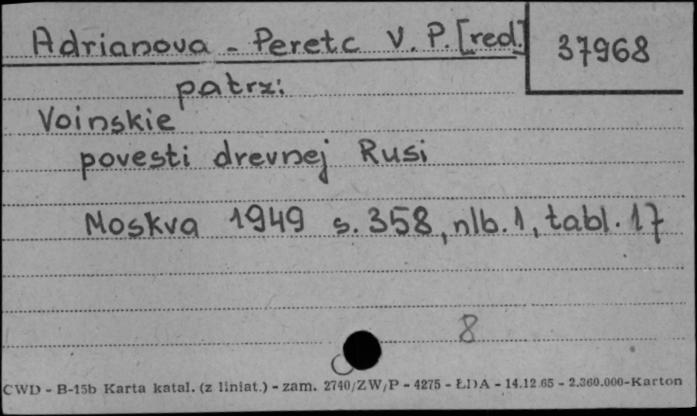 Adrianova - Peretc V. P. [red.]
37968
patrz:
Voinskie
povesti drevnej Rusi
Moskva 1949 s. 358, nlb. 1, tabl. 17
8
CWD - B-15b Karta katal. (z liniat.) - zam. 2740/ZW/P - 4275 - ŁDA - 14.12.65 - 2.360.000-Karton